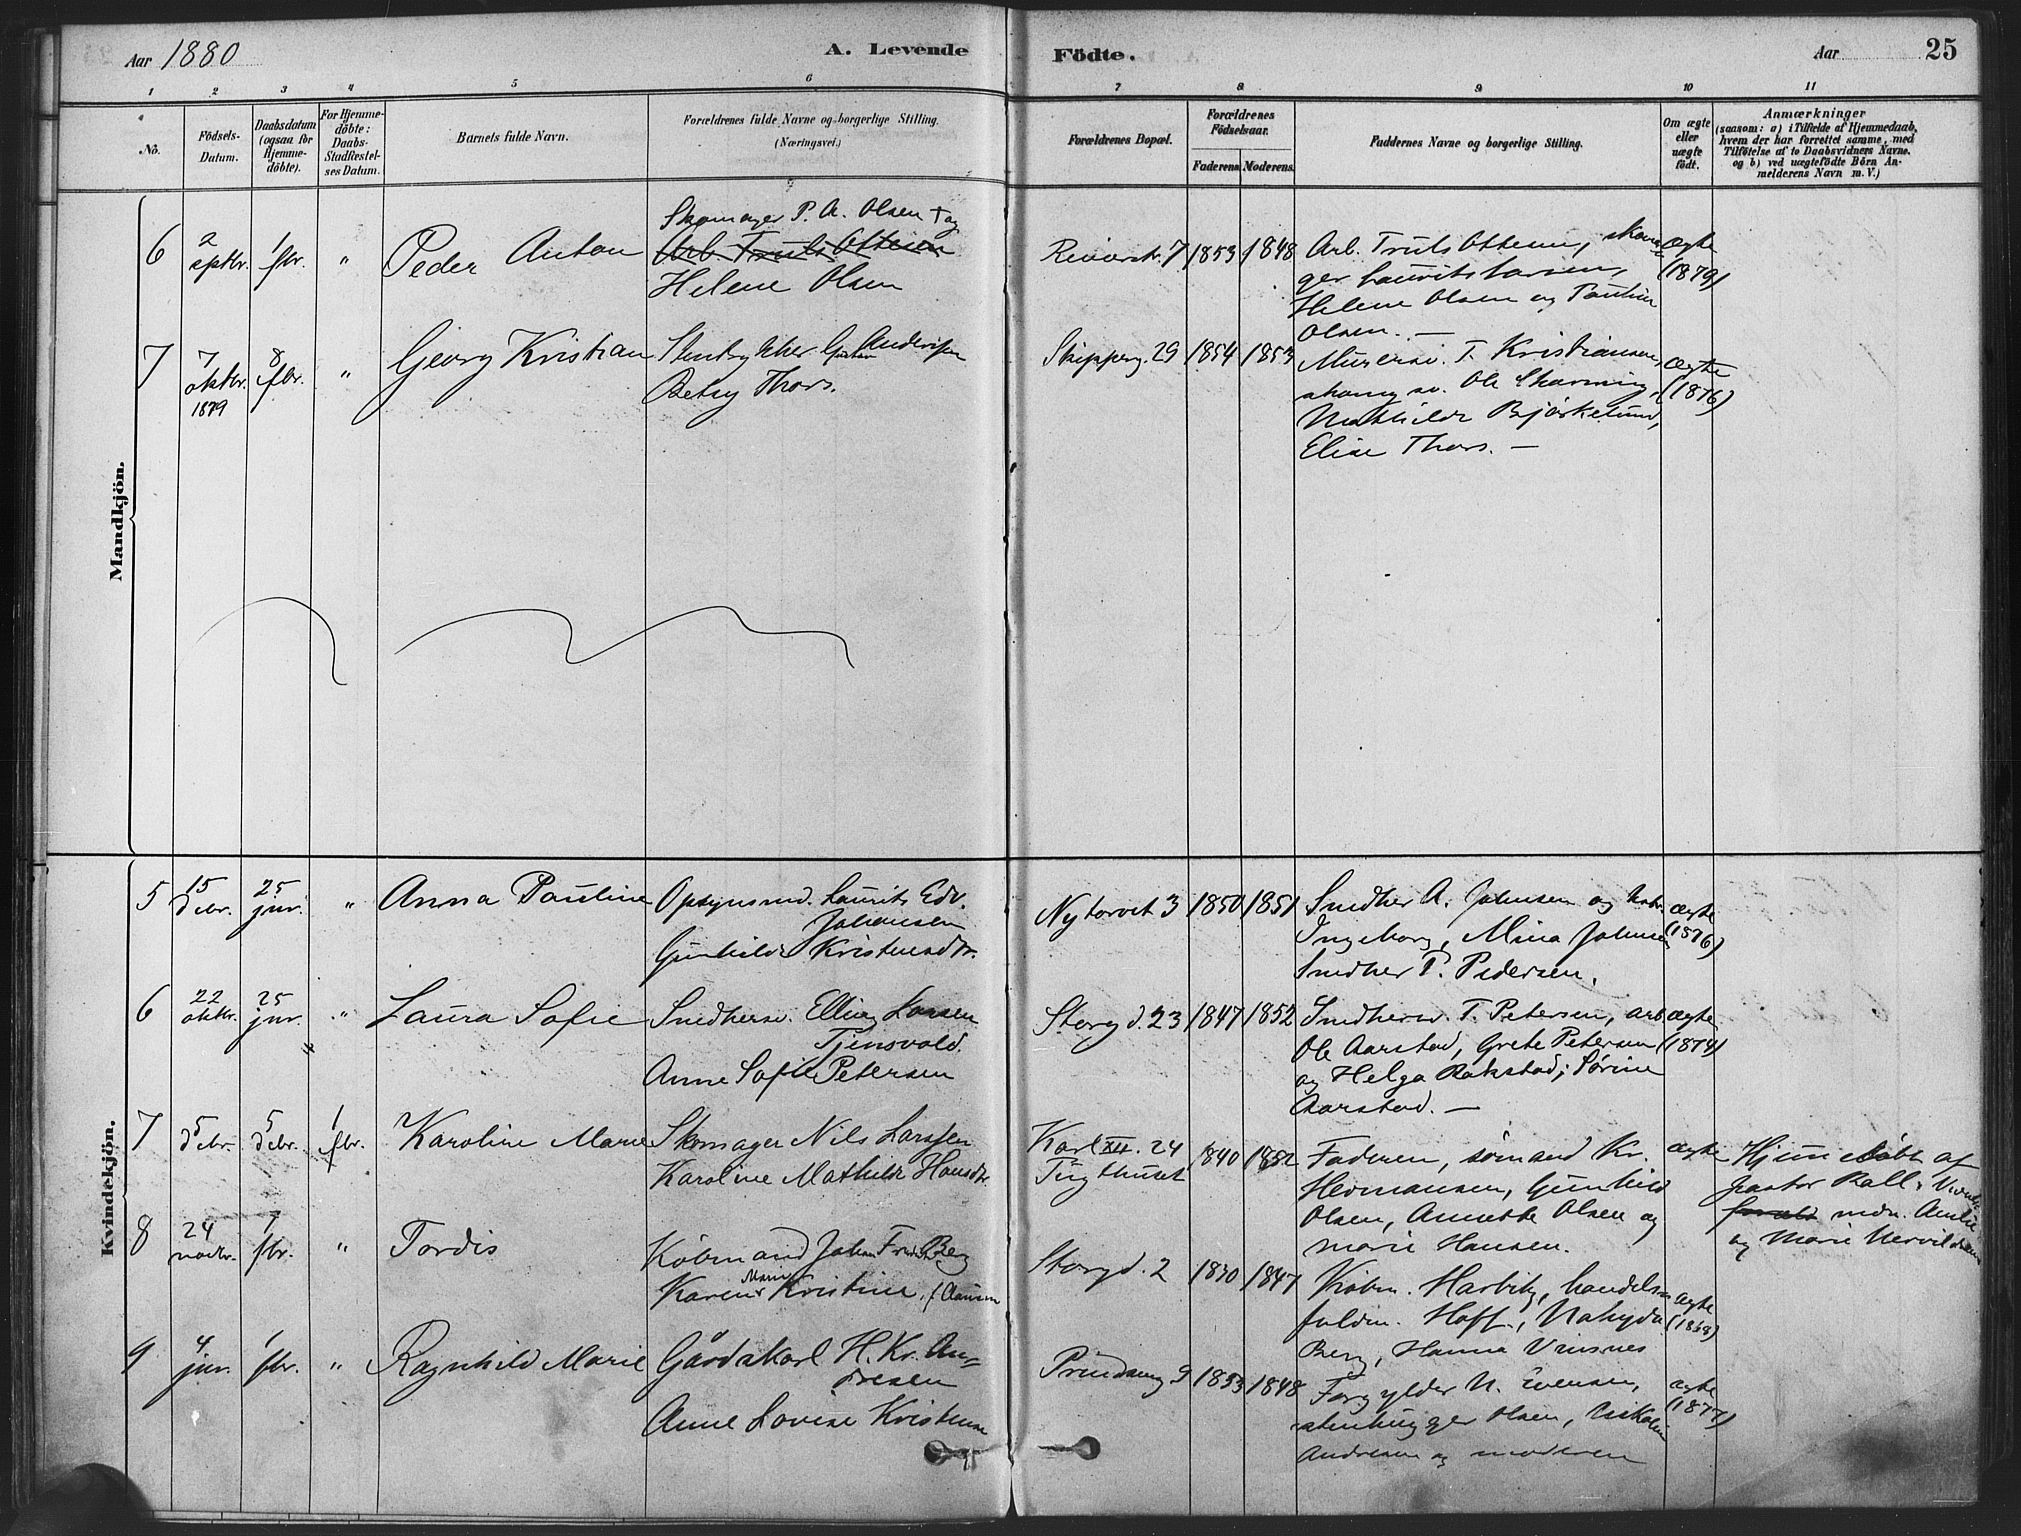 Aar 1880
A. Levende
Födte.
Aar
25
1 2 3 4 5 6 7 8 9 10 11
No.
Födsels-
Datum.
Daabsdatum
(ogsaa for
Hjemme-
döbte).
For Hjemme-
döbte:
Daabs-
Stadfæstel-
ses Datum.
Barnets fulde Navn.
Forældrenes fulde Navne og borgerlige Stilling.
(Næringsvei.)
Forældrenes Bopæl.
Forældrenes
Födselsaar.
Faderens
Moderens.
Faddernes Navne og borgerlige Stilling.
Om ægte
eller
uægte
födt.
Anmærkninger
(saasom: a) i Tilfælde af Hjemmedaab,
hvem der har forrettet samme, med
Tilföielse af to Daabsvidners Navne.
og b) ved uægtefödte Börn An-
melderens Navn m. V.)
Mandkjön.
6
2
sptbr.
1
fbr.
"
Peder Anton
Skomager P. A. Olsen † og
Arb. Truls Ottesen
Helene Olsen
7 1853 1848
Arb. Truls Ottesen, skoma
ger Laurits Larsen,
Helene Olsen og Pauline
Olsen. —
ægte
(1879)
7
7
oktbr.
1879
8
fbr.
"
Georg Kristian
Gustav Andersen
Betsy Thors.
Skipperg. 29 1854 1853
Murersv. T. Kristiansen,
Ole
Mathilde Bjørkelund,
Elise Thors. —
ægte
(1876)
Kvindekjön.
5
15
debr.
25
jnr.
"
Anna Pauline
Opsynsmd. Laurits Edv.
Johansen
Gunhilde Kristensdtr.
Nytorvet 3 1850 1851
Smdher A. Johnsen og
Ingeborg, Mina Johnsen
Smdher P. Pedersen.
ægte
(1876)
6
22
oktbr.
25
jnr.
"
Laura Sofie
Smdhersv. Elling Larsen
Tjensvold.
Anne Sofie Petersen
Storgd. 23 1847 1852
Smdhersv. T. Petersen, arb
Ole Aarstad, Grete Petersen
og Helga Rakstad; Sørine
Aarstad. —
ægte
(1874)
7
5
debr.
5
debr.
1
fbr.
Karoline Marie
Skomager Nils Larssen
Karoline Mathilde Hansdtr.
Karl XII. 24
Tugthuset
1840 1852
Faderen, sømand Kr.
Hermansen, Gunhild
Olsen, Annette Olsen og
Marie Hansen.
ægte
Hjemmedøbt af
pastor Rall.
mdr. Amlie
og Marie
8
24
novbr.
1
fbr.
"
Tordis
Købmand Johan Fredrik Berg
Karen Marie Kristine, f. Clausen
Storgd. 2 1830 1847
Købm. Harbitz, handels
fuldm. Hoff,
Berg, Hanna Vinsnes
ægte
(1869)
9
4
jnr.
1
fbr.
"
Ragnhild Marie
Gårdskarl H. Kr. An-
dresen
Anne Lovise Kristensen
Prindseng 9 1853 1848
Forgylder N. Evensen,
stenhugger Olsen,
Andresen og moderen
ægte
(1877)